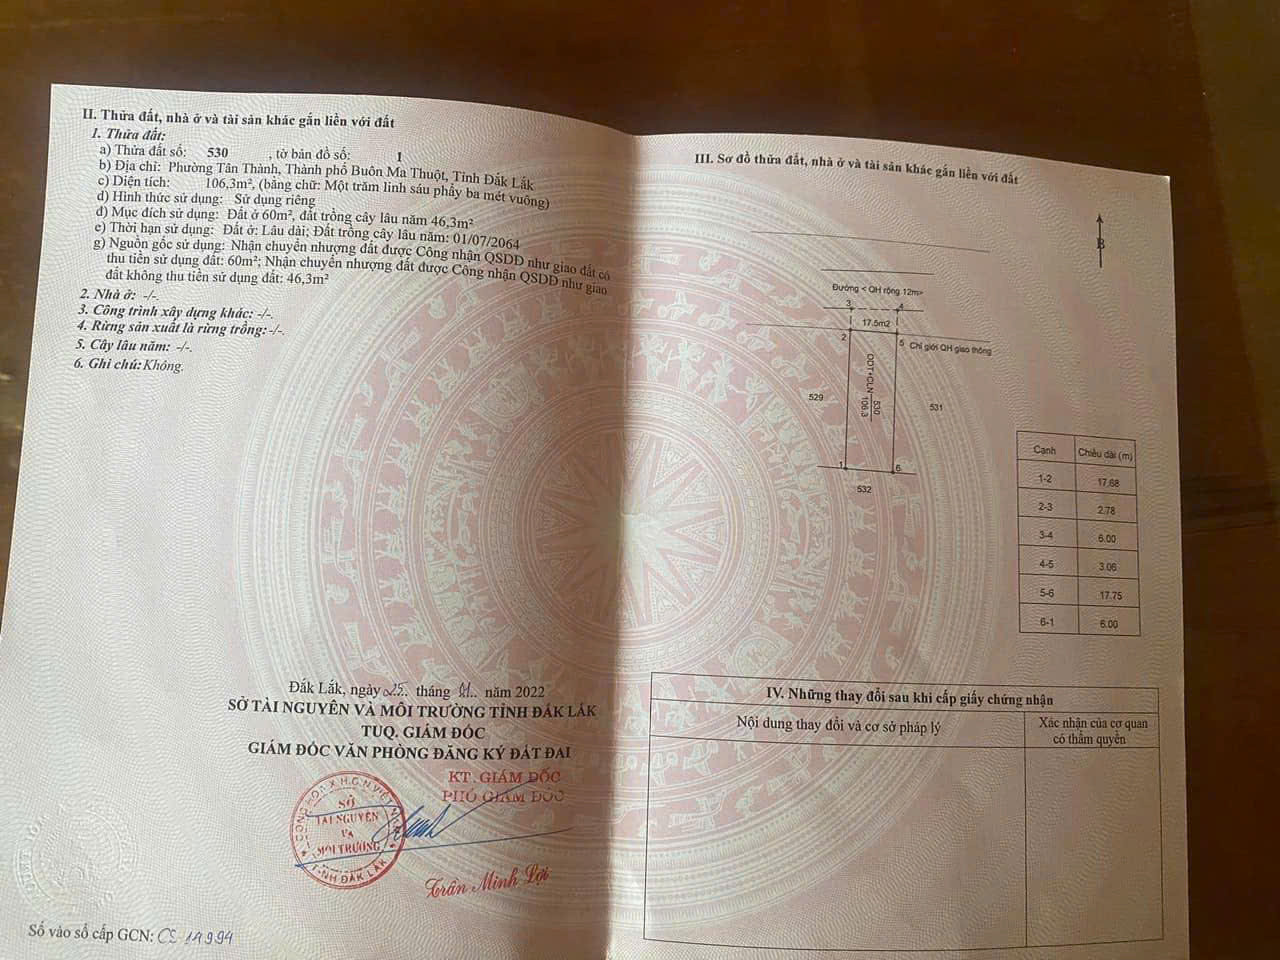 II. Thửa đất, nhà ở và tài sản khác gắn liền với đất
1. Thửa đất:
a) Thửa đất số: 530 , tờ bản đồ số: 1
b) Địa chỉ: Phường Tân Thành, Thành phố Buôn Ma Thuột, Tỉnh Đắk Lắk
c) Diện tích: 106,3m², (bằng chữ: Một trăm linh sáu phẩy ba mét vuông)
d) Hình thức sử dụng: Sử dụng riêng
đ) Mục đích sử dụng: Đất ở 60m², đất trồng cây lâu năm 46,3m²
e) Thời hạn sử dụng: Đất ở: Lâu dài; Đất trồng cây lâu năm: 01/07/2064
g) Nguồn gốc sử dụng: Nhận chuyển nhượng đất được Công nhận QSDĐ như giao đất có
thu tiền sử dụng đất: 60m²; Nhận chuyển nhượng đất được Công nhận QSDĐ như giao
đất không thu tiền sử dụng đất: 46,3m²
2. Nhà ở: -/-.
3. Công trình xây dựng khác: -/-.
4. Rừng sản xuất là rừng trồng: -/-.
5. Cây lâu năm: -/-.
6. Ghi chú: Không.
Đắk Lắk, ngày 25. tháng 01.. năm 2022
SỞ TÀI NGUYÊN VÀ MÔI TRƯỜNG TỈNH ĐẮK LẮK
TUQ. GIÁM ĐỐC
GIÁM ĐỐC VĂN PHÒNG ĐĂNG KÝ ĐẤT ĐAI
KT. GIÁM ĐỐC
PHÓ GIÁM ĐỐC
CỘNG HÒA X.H.C.N VIỆT NAM
SỞ
TÀI NGUYÊN
VÀ
MÔI TRƯỜNG
TỈNH ĐẮK LẮK
Trần Minh Lợi
Số vào sổ cấp GCN: CS 14994
III. Sơ đồ thửa đất, nhà ở và tài sản khác gắn liền với đất
B
Đường < QH rộng 12m>
3
4
17.5m2
2
5
Chỉ giới QH giao thông
ODT+CLN 530
106.3
529
531
1
6
532
Cạnh Chiều dài (m)
1-2 17.68
2-3 2.78
3-4 6.00
4-5 3.06
5-6 17.75
6-1 6.00
IV. Những thay đổi sau khi cấp giấy chứng nhận
Nội dung thay đổi và cơ sở pháp lý
Xác nhận của cơ quan
có thẩm quyền